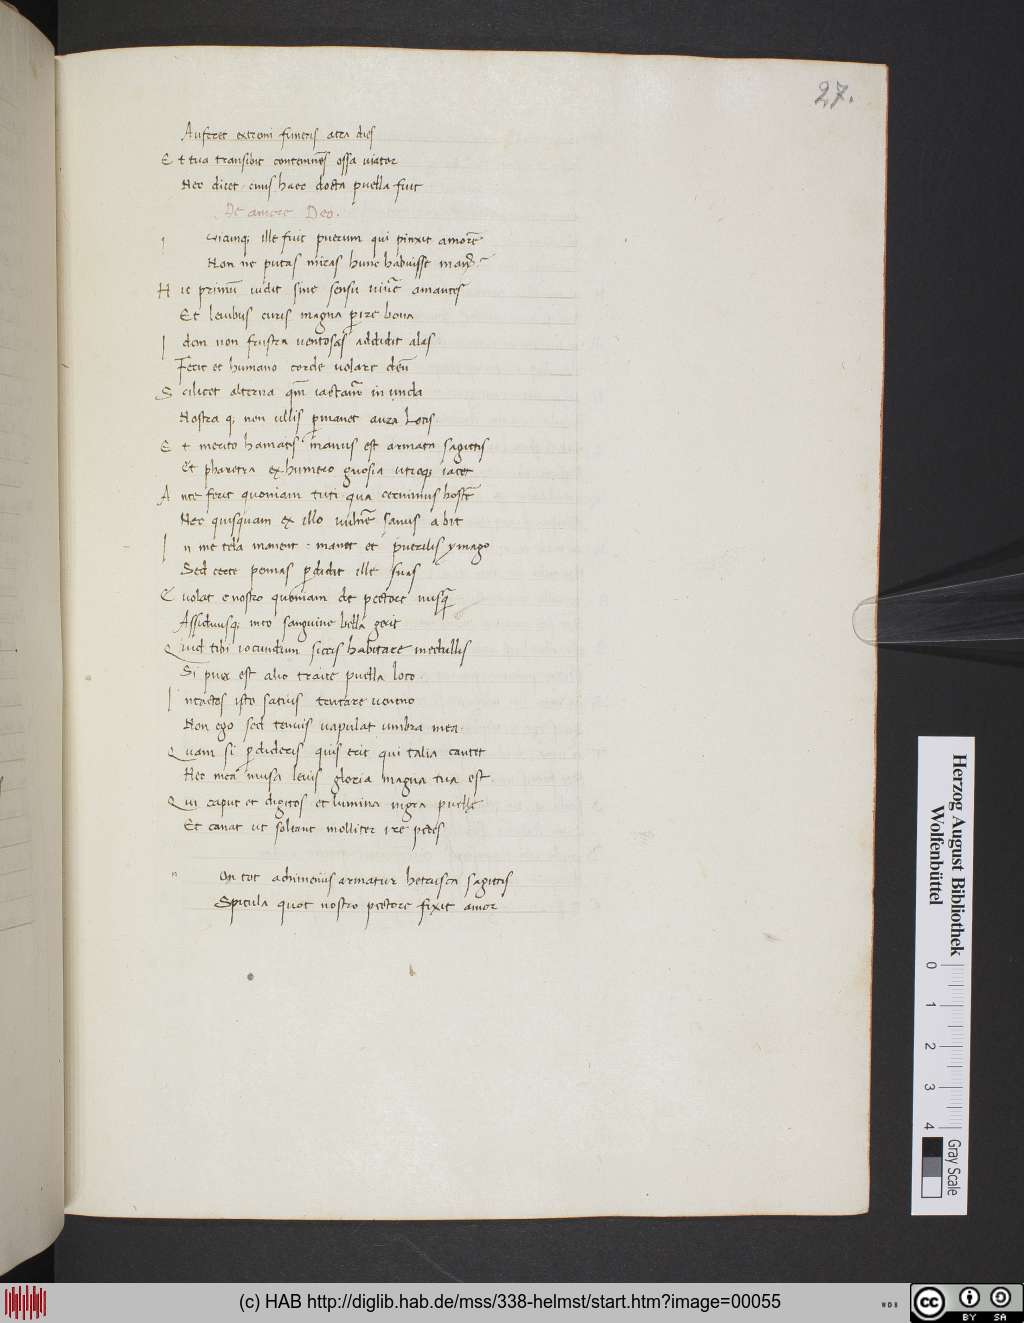 27.
Auferet extremi funeris atra dies
E t tua transibit contemnēs ossa uiator
Nec dicet cinis haec docta puella fuit
De amore Deo.
uicunq; ille fuit puerum qui pinxit amorē
Non ne putas miras hunc habuisse man9
H ic primū uidit sine sensu uiue amantes
Et leuibus curis magna perire bona
I dem non frustra uentosas addidit alas
Fecit et humano corde uolare deū
S cilicet alterna qm iactamr in unda
Nostra q; non ullis permanet aura Locis
E t merito hamatis manus est armata sagittis
Et pharetra ex humero gnosia utroq; iacet
A nte ferit quoniam tuti qua cernimus hostē
Nec quisquam ex illo uulnere sanus abit
I n me tela manent . manet et puerilis ymago
Sed certe pennas perdidit ille suas
E uolat e nostro quoniam de pectore nusq̄
Assiduusq; meo sanguine bella gerit
Q uid tibi iocundum siccis habitare medullis
Si puer est alio traice puella loco .
I ntactos isto satius tentare ueneno
Non ego sed tenuis uapulat umbra mea .
Q uam si perdideris quis erit qui talia cantet
Nec mea musa leuis gloria magna tua est .
Q ui caput et digitos et lumina nigra puelle
Et canat ut soleant molliter ire pedes
n
On tot achimenius armatur hetrusca sagittis
Spicula quot nostro pectore fixit amor
Herzog August Bibliothek
Wolfenbüttel
0 1 2 3 4
Gray Scale
(c) HAB http://diglib.hab.de/mss/338-helmst/start.htm?image=00055
WDB
cc BY SA